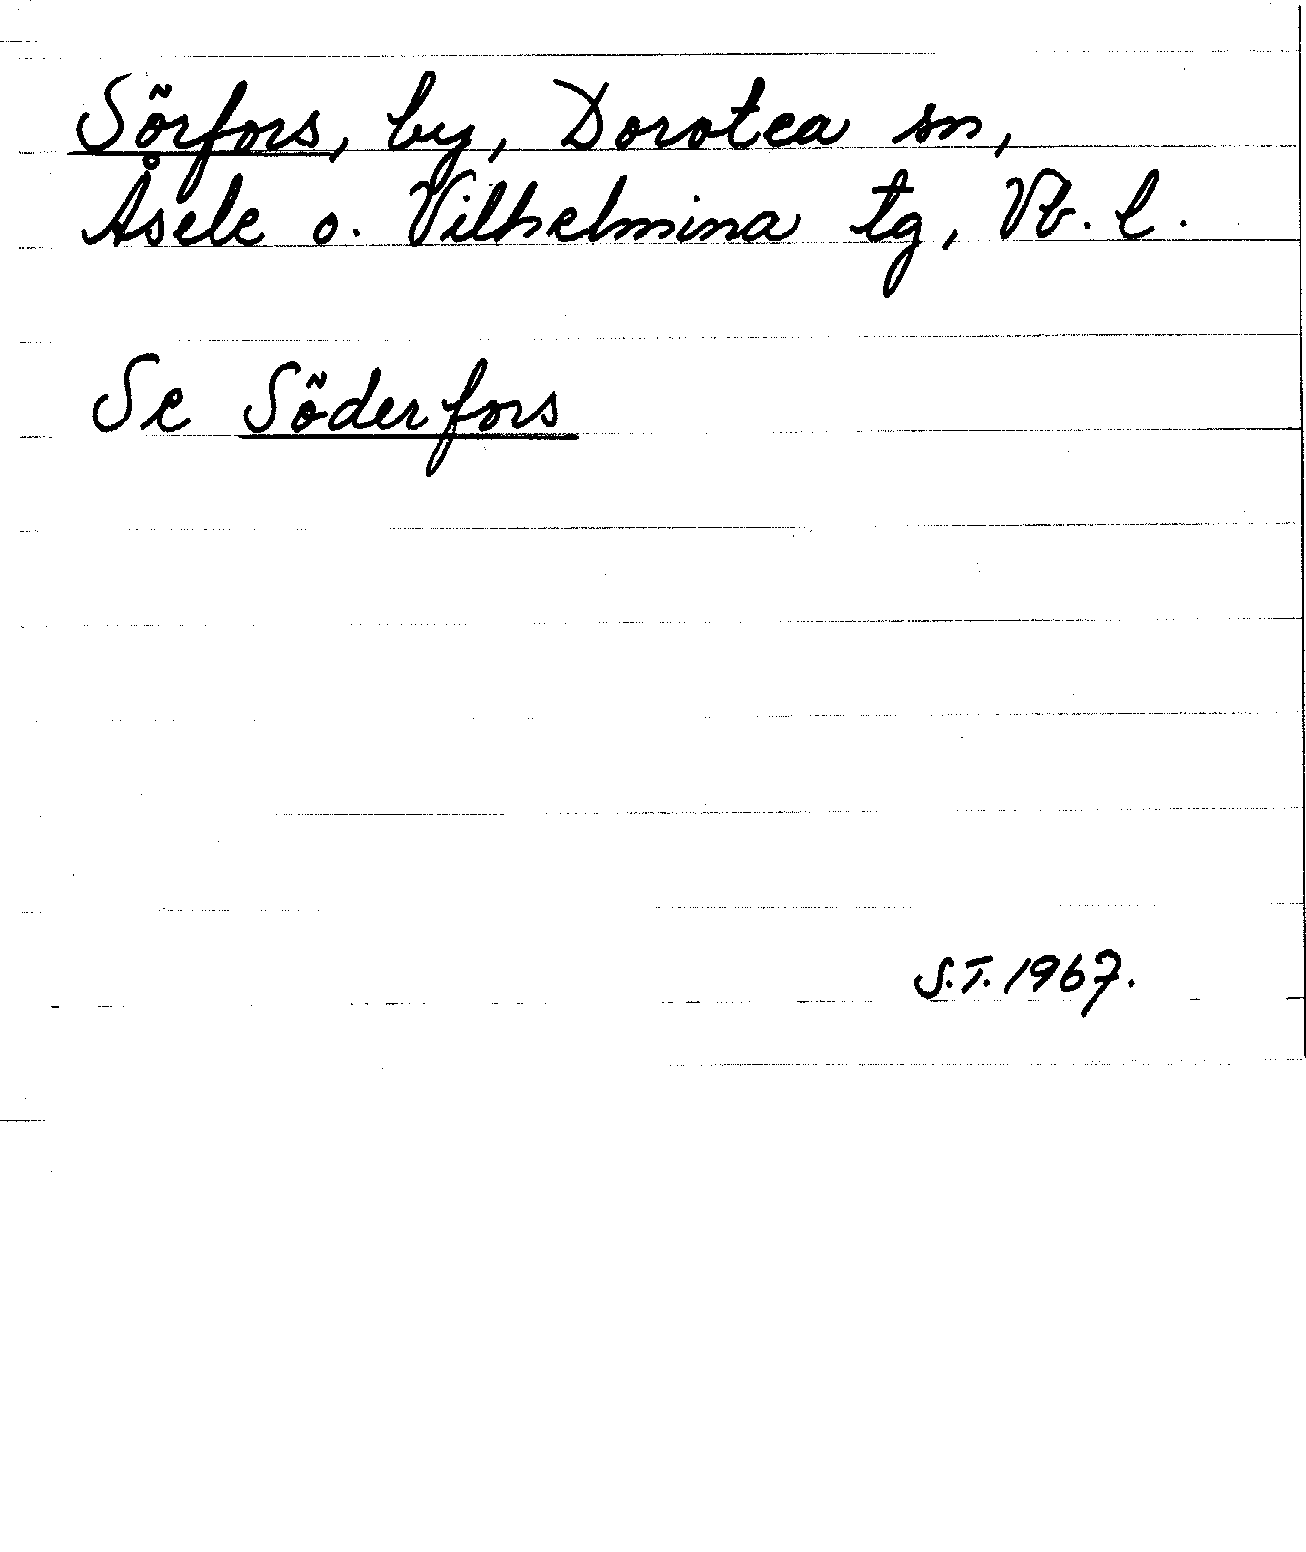 Sörfors, by, Dorotea sn,
Åsele o. Vilhelmina tg, Vb. l.
Se Söderfors
S.T. 1967.